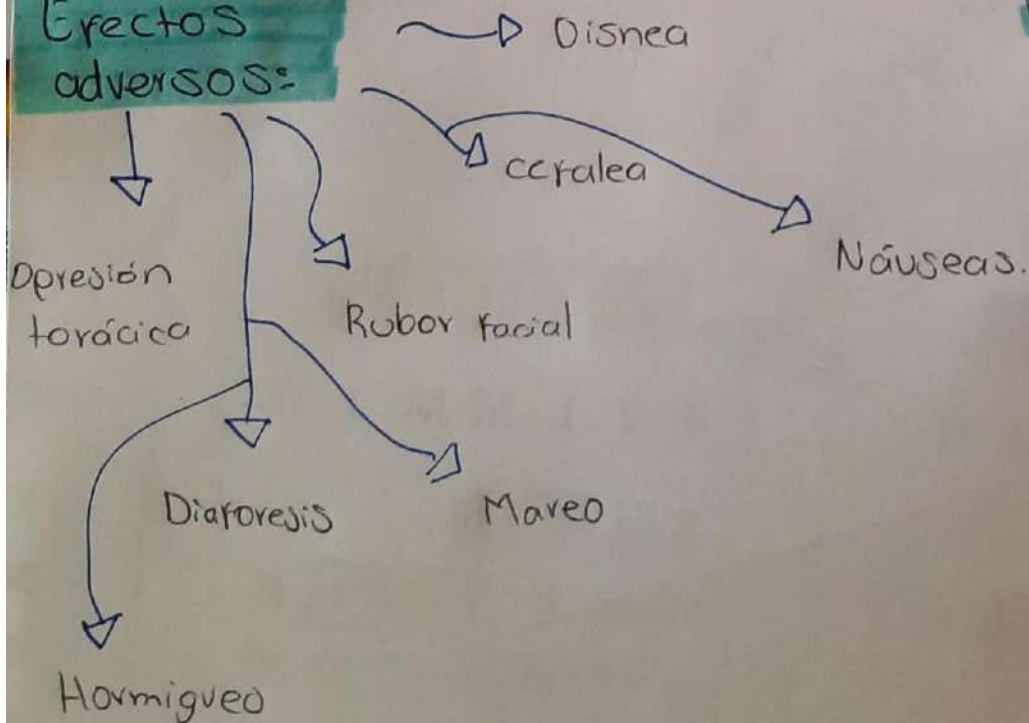 Efectos
adversos:
Disnea
cefalea
Náuseas.
Opresión
torácica
Rubor facial
Diaforesis
Mareo
Hormigueo